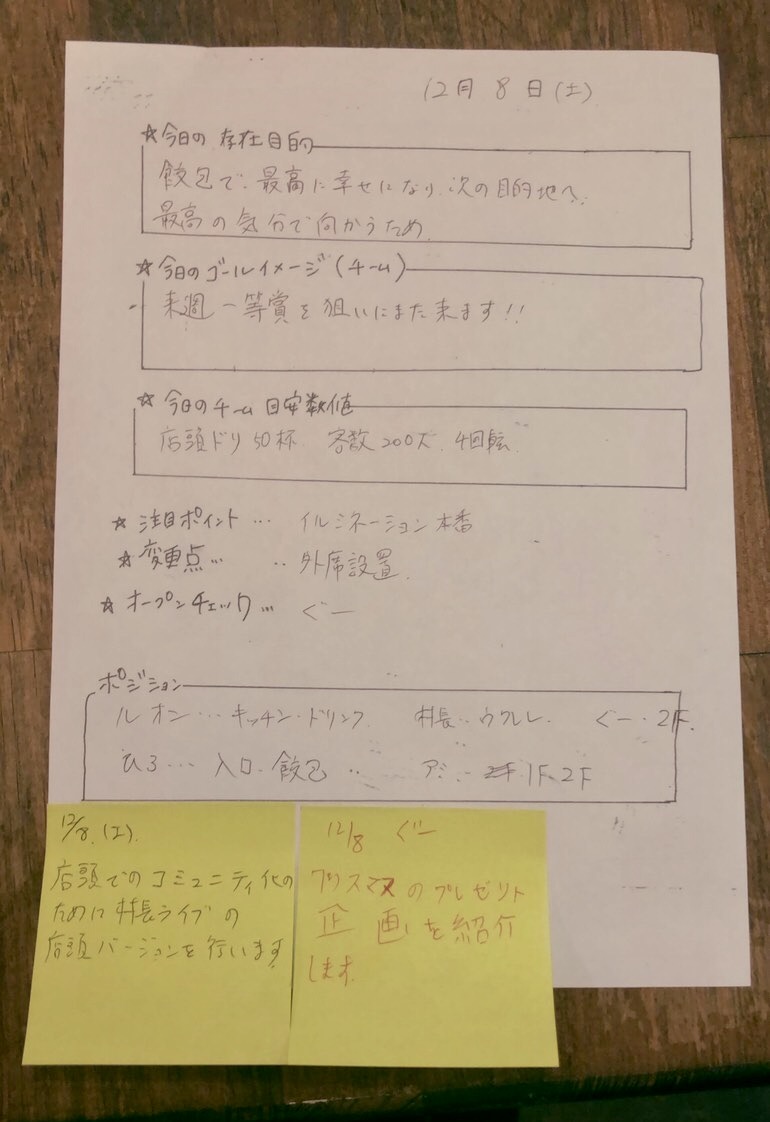 12月 8日(土)
☆今日の存在目的
餃包で、最高に幸せになり、次の目的地へ、
最高の気分で向かうため。
☆今日のゴールイメージ(チーム)
来週一等賞を狙いにまた来ます!!
☆今日のチーム目安数値
店頭ドリ50杯、客数200人、4回転
☆注目ポイント… イルミネーション本番
☆変更点… ‥外席設置。
☆オープンチェック… ぐー
ポジション
ルオン…キッチン・ドリンク 村長‥ウクレレ ぐー‥2F.
ひろ… 入口・餃包‥ アミ‥1F.2F
12/8.(土).
店頭でのコミュニティ化の
ために村長ライブの
店頭バージョンを行います
12/8 ぐー
クリスマスのプレゼント
企画を紹介
します。